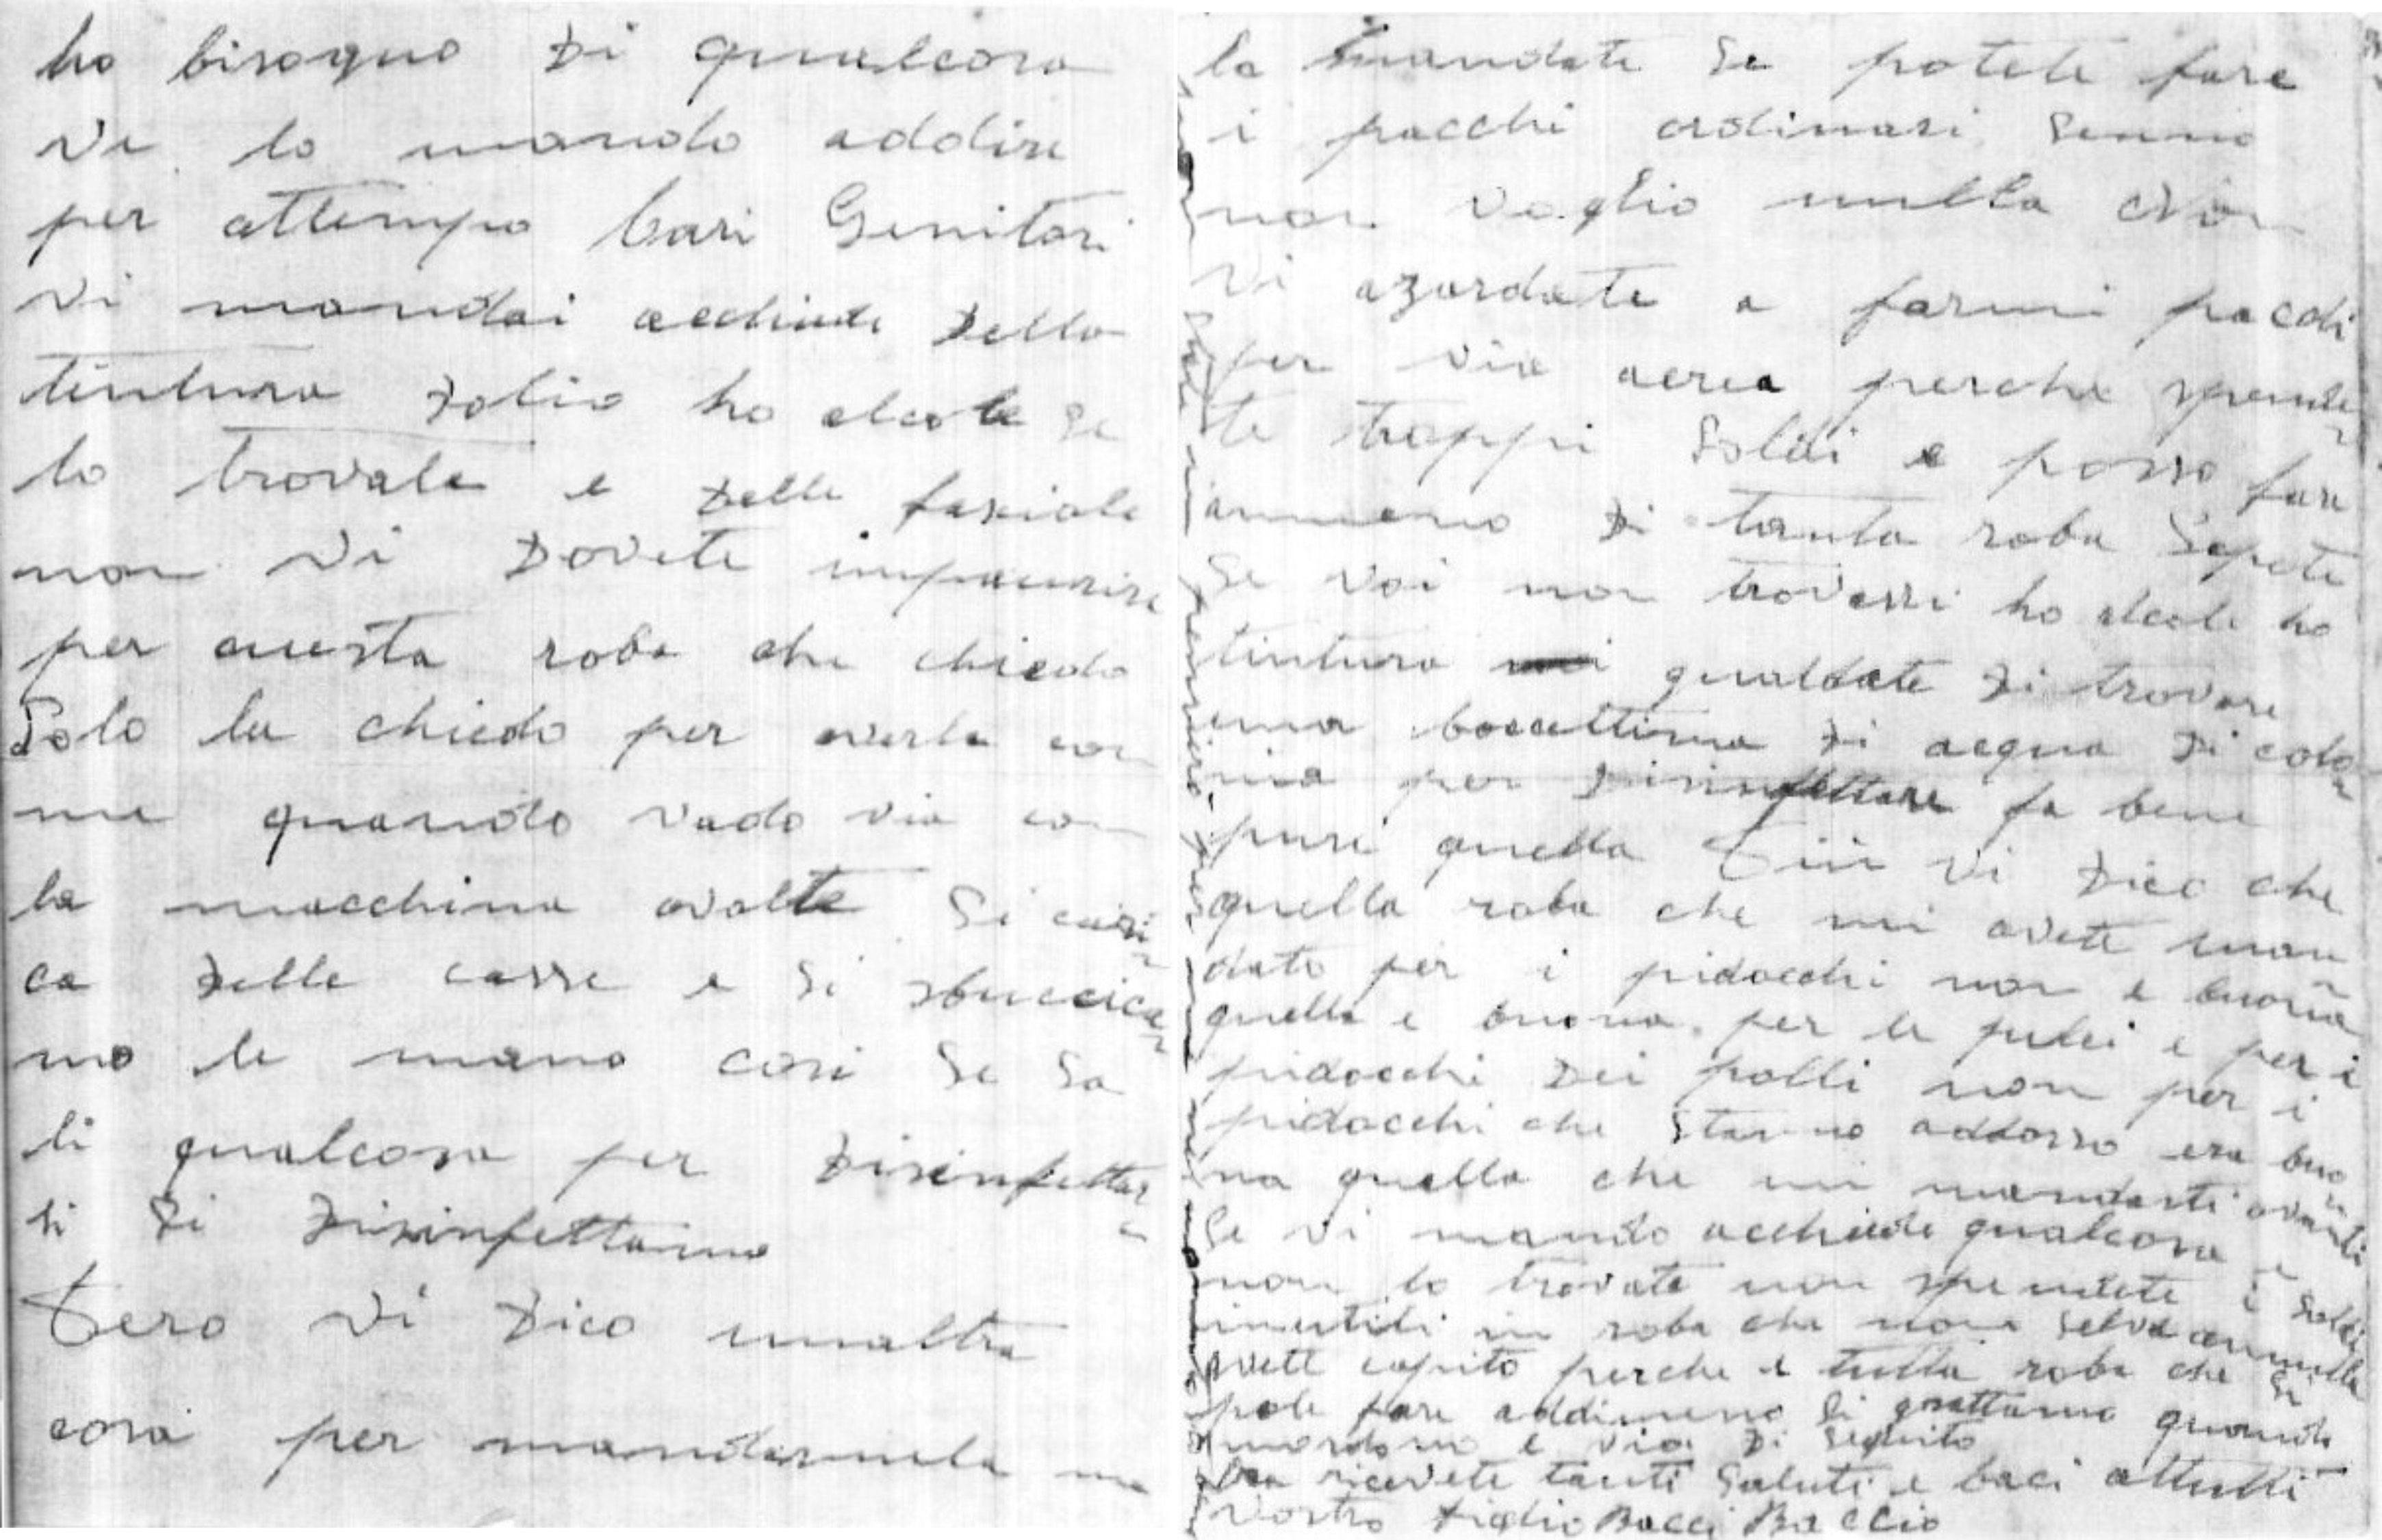 ho bisogno di qualcosa
ve lo mando addire
per attempo Cari Genitori
vi mandai acchiede della
tintura iolio ho alcole se
lo trovate e delle fasciole
non vi dovete impaurire
per questa roba che chiedo
Solo la chiedo per averla con
me quando vado via con
la macchina avolte si cari
ca delle casse e si sbuccica
no le mano cosi se sa
li qualcosa per disinfettar
li si disinfettamo
Pero vi dico unaltra
cosa per mandarmela
la mandate se potete fare
i pacchi ordinari senno
non voglio nulla Non
vi azardate a farmi pacchi
per via aerea perche spende
te troppi soldi e posso fare
ammeno di tanta roba Sapete
se voi non trovassi ho alcole ho
tintura gualdate di trovare
una boccettina di acqua di colo
nia per disinfettare fa bene
pure quella Piu vi dico che
quella roba che mi avete man
dato per i pidocchi non e buona
quella e buona per le pulci e per i
pidocchi dei polli non per i
pidocchi che stanno addosso era buo
na quella che mi mandasti avanti
Se vi mando acchiede qualcosa e
non lo trovate non spendete i soldi
inutili in roba che non selve annulla
avete capito perche e tutta roba che si
pole fare addimeno si grattamo quando
mordano e via di seguito
ricevete tanti saluti e baci attutti
Vostro figlio Bacci Baccio